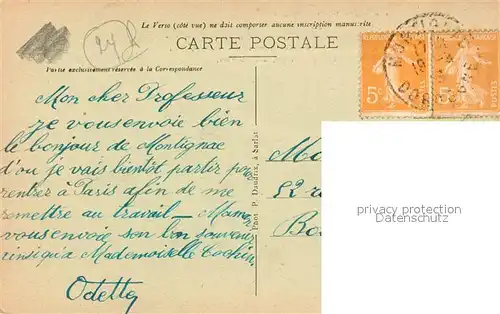 Le Verso (côté vue) ne doit comporter aucune inscription manuscrite
CARTE POSTALE
Partie exclusivement réservée à la Correspondance
Mon cher Professeur
je vous envoie bien
le bonjour de Montignac
d'où je vais bientôt partir pour
rentrer à Paris afin de me
remettre au travail — Maman
vous envoie son bon souvenir
ainsi qu'à Mademoiselle Cochin
Odette
Phot. P. Daudrix, à Sarlat
52
5c
POSTES
5c
POSTES
privacy protection
Datenschutz